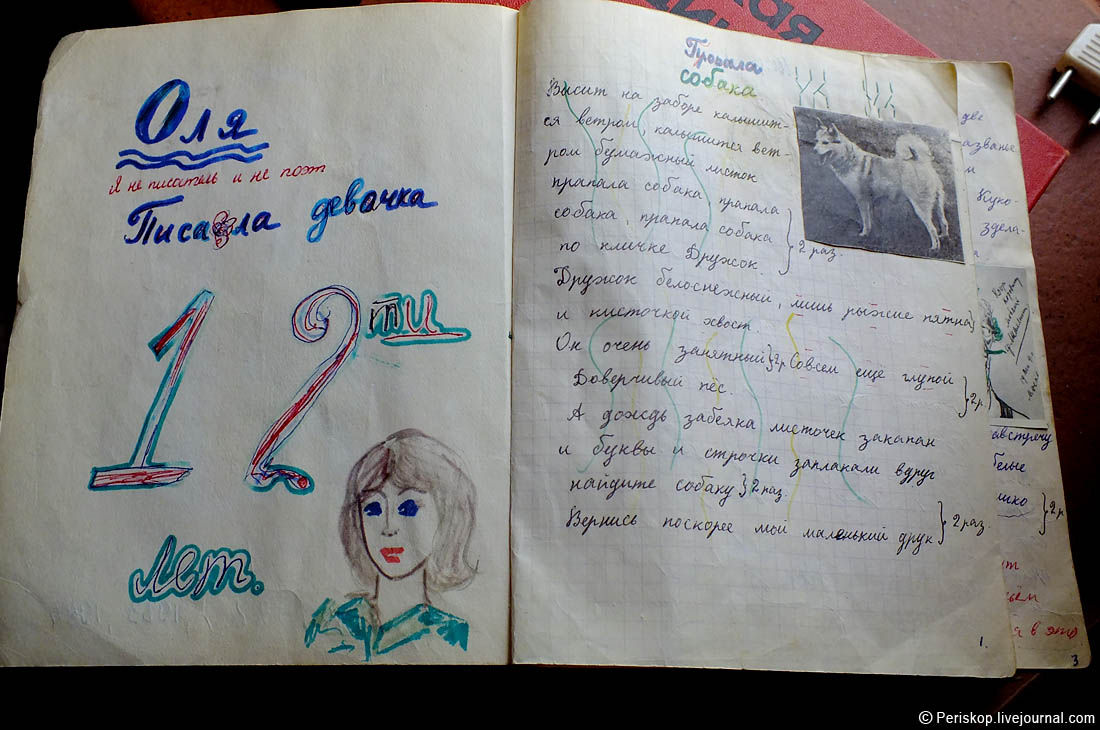 Оля
Я не писатель и не поэт
Писала девочка
12 ти
Лет.
Пропала
собака
Висит на заборе калышит-
ся ветром, калышится вет-
ром бумажный листок
прапала собака прапала
собака, прапала собака
по кличке Дружок. } 2 раз.
Дружок белоснежный, лишь рыжие пятна}
и кисточкой хвост.
Он очень занятный}2р Совсем ещё глупой
Доверчивый пёс. } 2р.
А дождь забеяка листочек закапан
и буквы и строчки заплакали вдруг
найдите собаку} 2 раз.
Вернись поскорее мой маленький друк } 2 раз.
1.
две
азванье
Куко-
здела-
а
навстречу
белые
шко } 2р
ют
ьём
я в это
3
© Periskop.livejournal.com